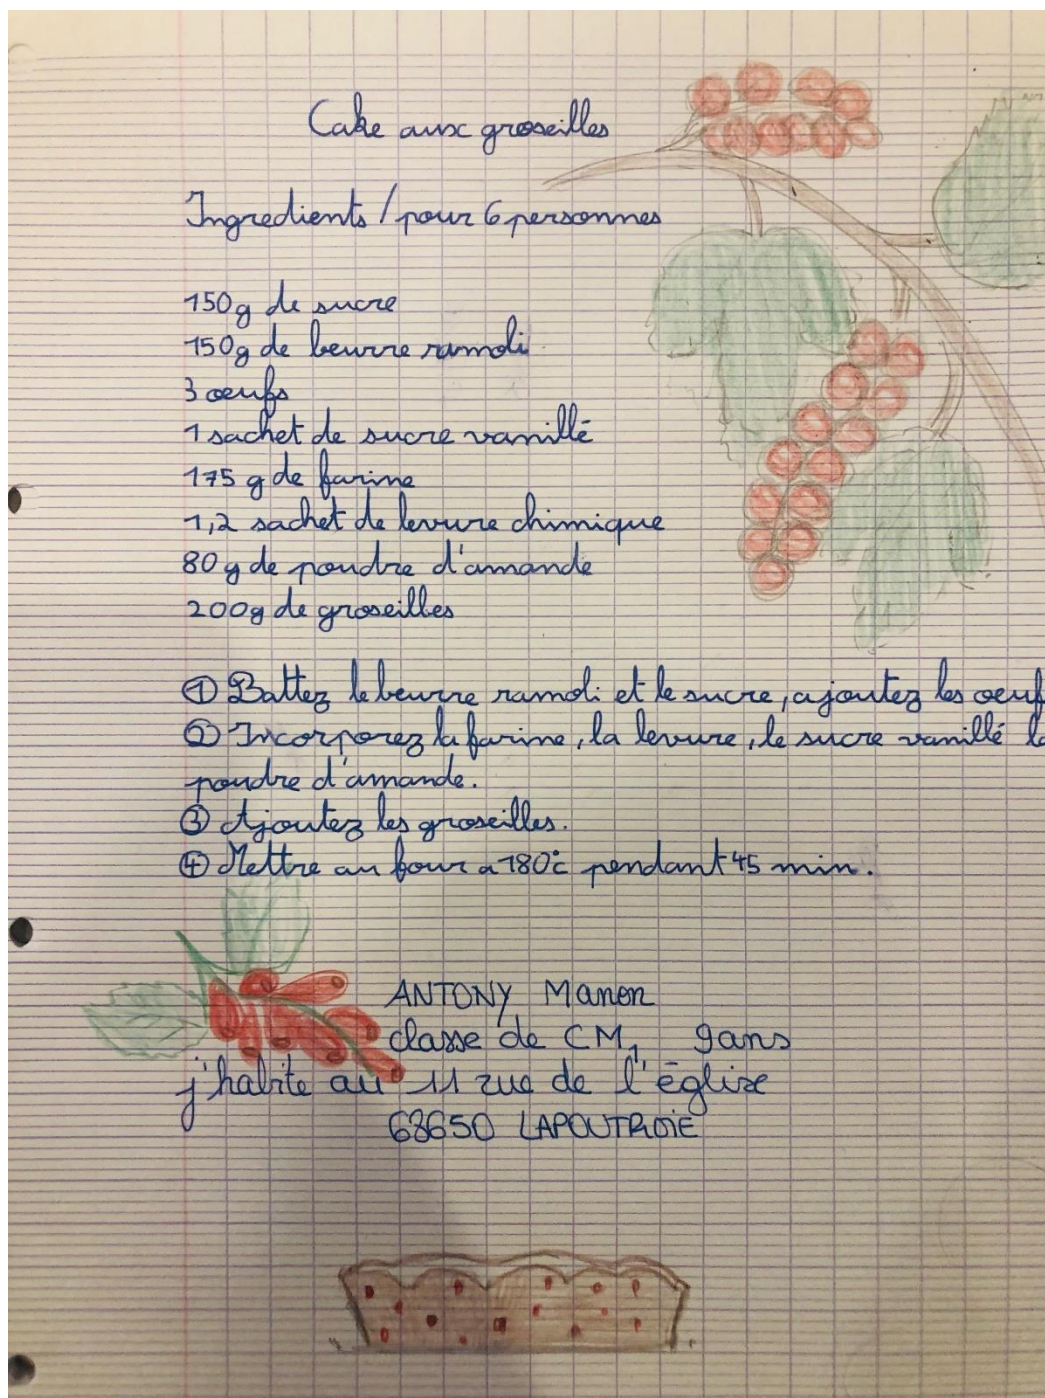 Cake aux groseilles
Ingredients / pour 6 personnes
150g de sucre
150g de beurre ramoli
3 oeufs
1 sachet de sucre vanillé
175 g de farine
1,2 sachet de levure chimique
80 g de poudre d'amande
200g de groseilles
① Battez le beurre ramoli et le sucre, ajoutez les oeuf
② Incorporez la farine, la levure, le sucre vanillé la
poudre d'amande.
③ Ajoutez les groseilles.
④ Mettre au four a 180°c pendant 45 min.
ANTONY Manon
classe de CM1 9ans
j'habite au 11 rue de l'église
68650 LAPOUTROIE